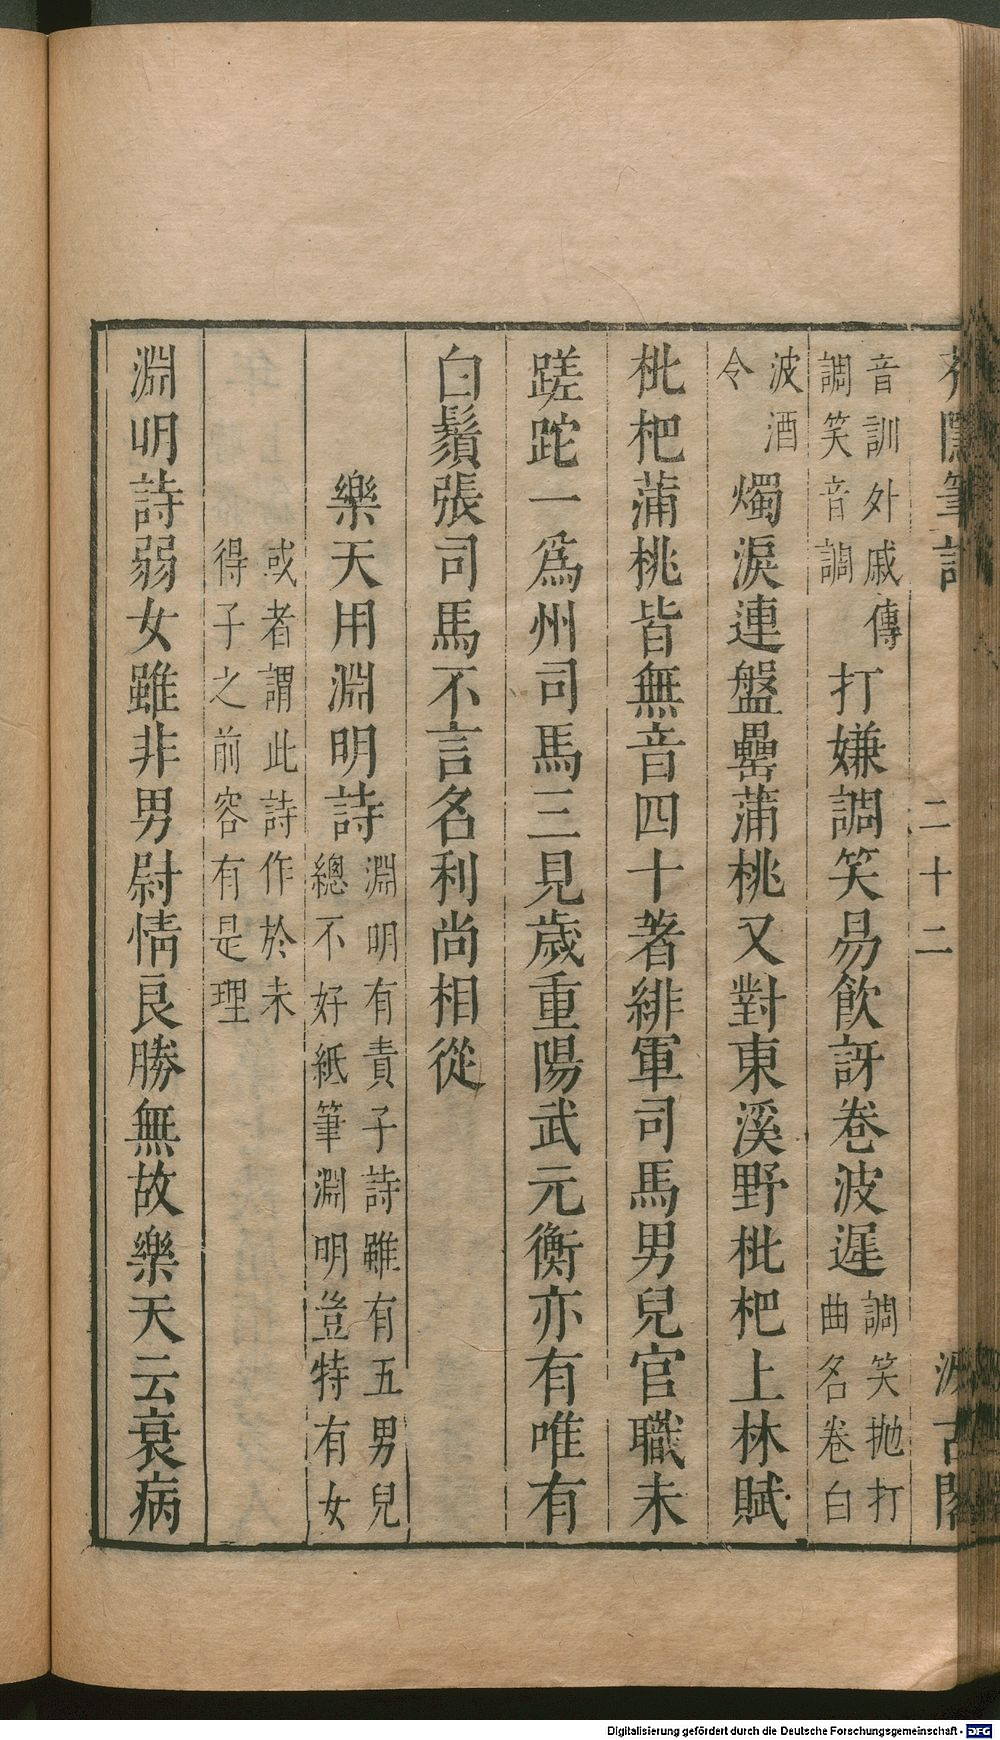 芥隱筆記 二十二 汲古閣
音訓外戚傳
調笑音調
打嫌調笑易飲訝卷波遲
調笑抛打
曲名卷白
波酒
令
燭淚連盤罍蒲桃又對東溪野枇杷上林賦
枇杷蒲桃皆無音四十著緋軍司馬男兒官職未
蹉跎一爲州司馬三見歲重陽武元衡亦有唯有
白鬚張司馬不言名利尚相從
樂天用淵明詩
淵明有責子詩雖有五男兒
總不好紙筆淵明豈特有女
或者謂此詩作於未
得子之前容有是理
淵明詩弱女雖非男尉情良勝無故樂天云衰病
Digitalisierung gefördert durch die Deutsche Forschungsgemeinschaft - DFG